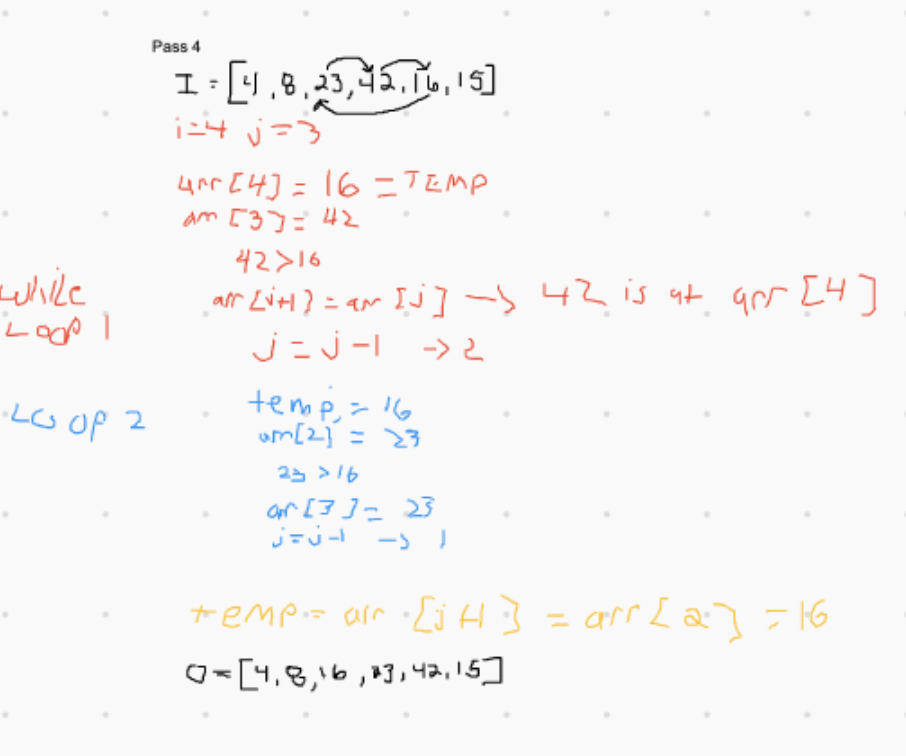 Pass 4
I = [4, 8, 23, 42, 16, 15]
i=4 j=3
arr [4] = 16 = TEMP
arr [3] = 42
42>16
while
Loop 1
arr [j+1] = arr [j] -> 42 is at arr [4]
j = j-1 -> 2
Loop 2
temp = 16
arr[2] = 23
23 >16
arr [3] = 23
j=j-1 -> 1
temp = arr [j+1] = arr [2] = 16
O=[4,8,16,23,42,15]